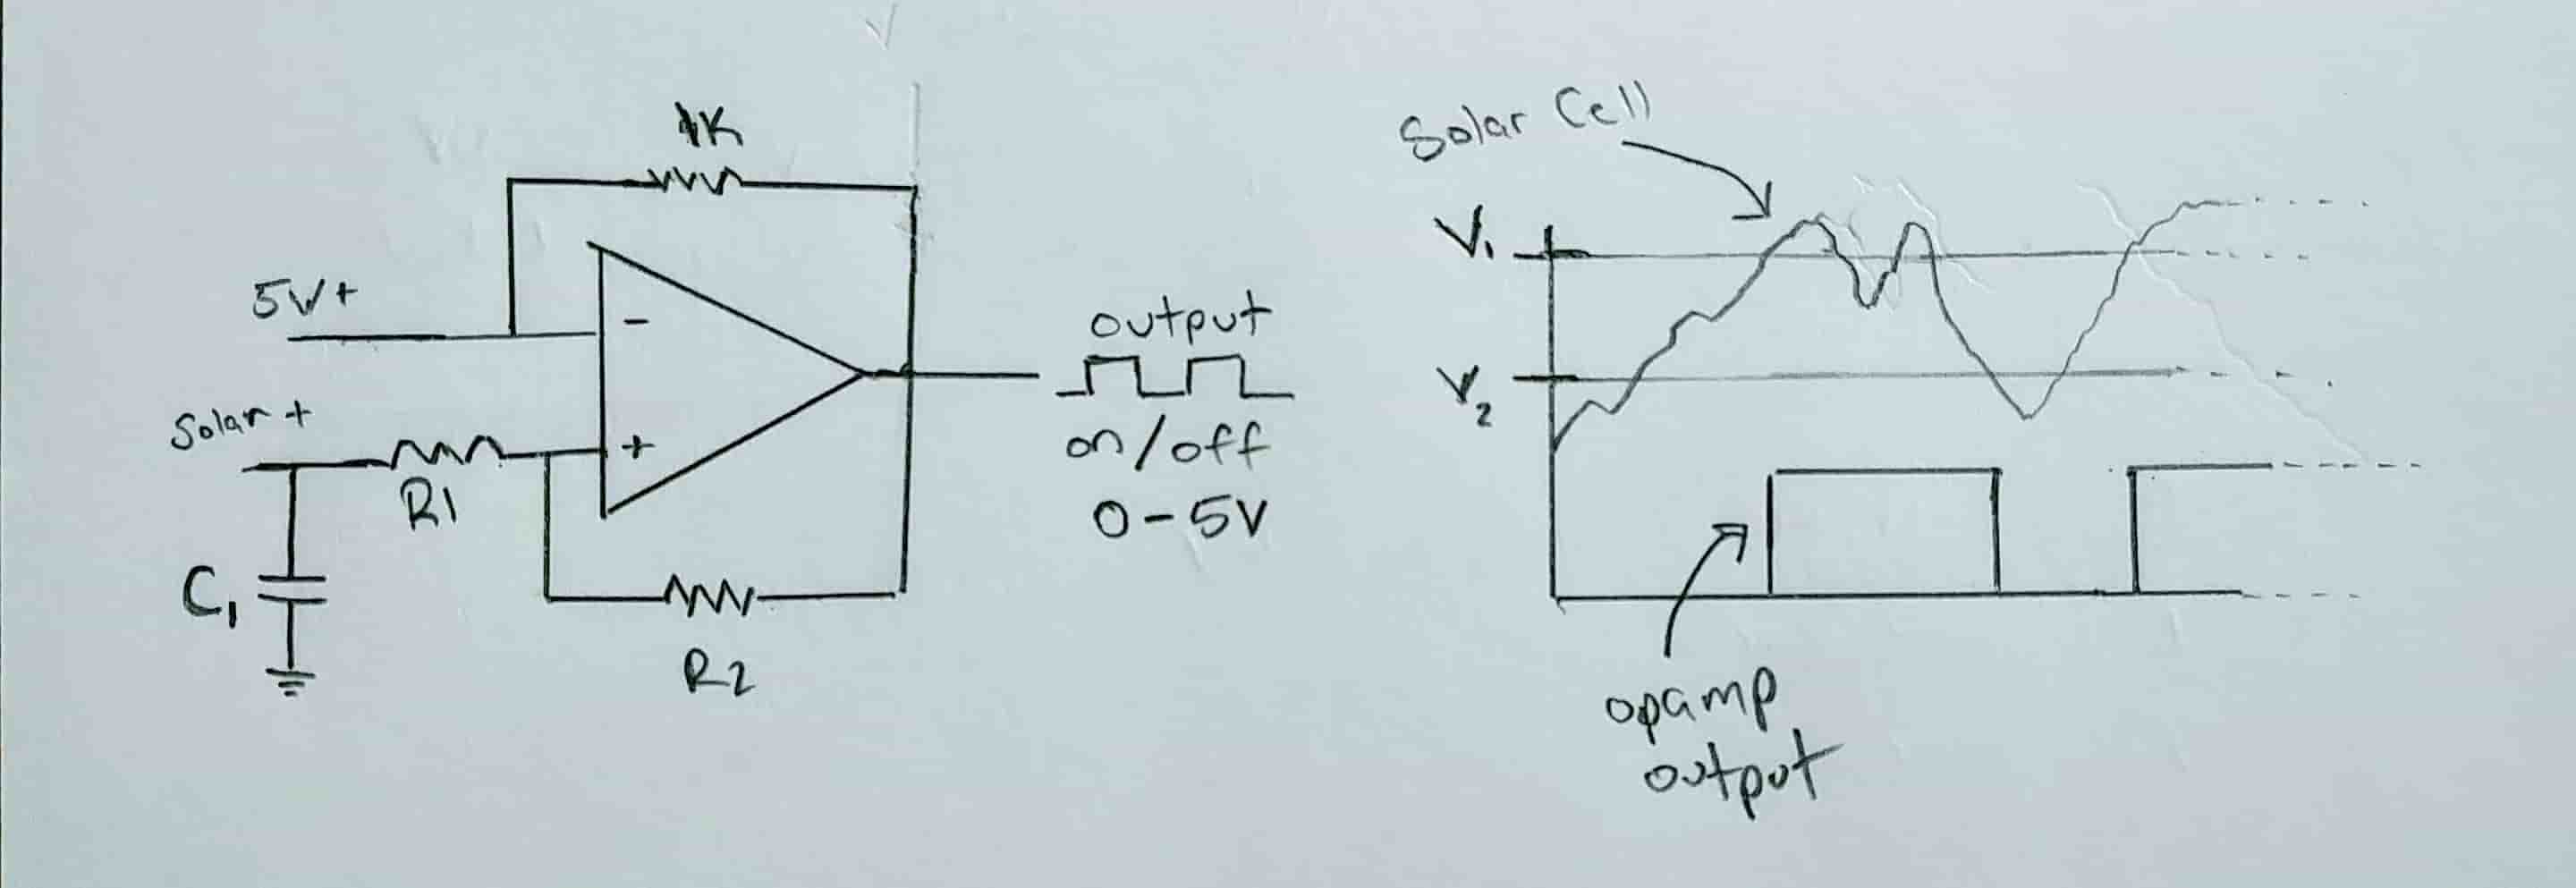 1K
5V+
-
Solar +
+
R1
C1
R2
output
on/off
0-5V
Solar Cell
V1
V2
opamp
output